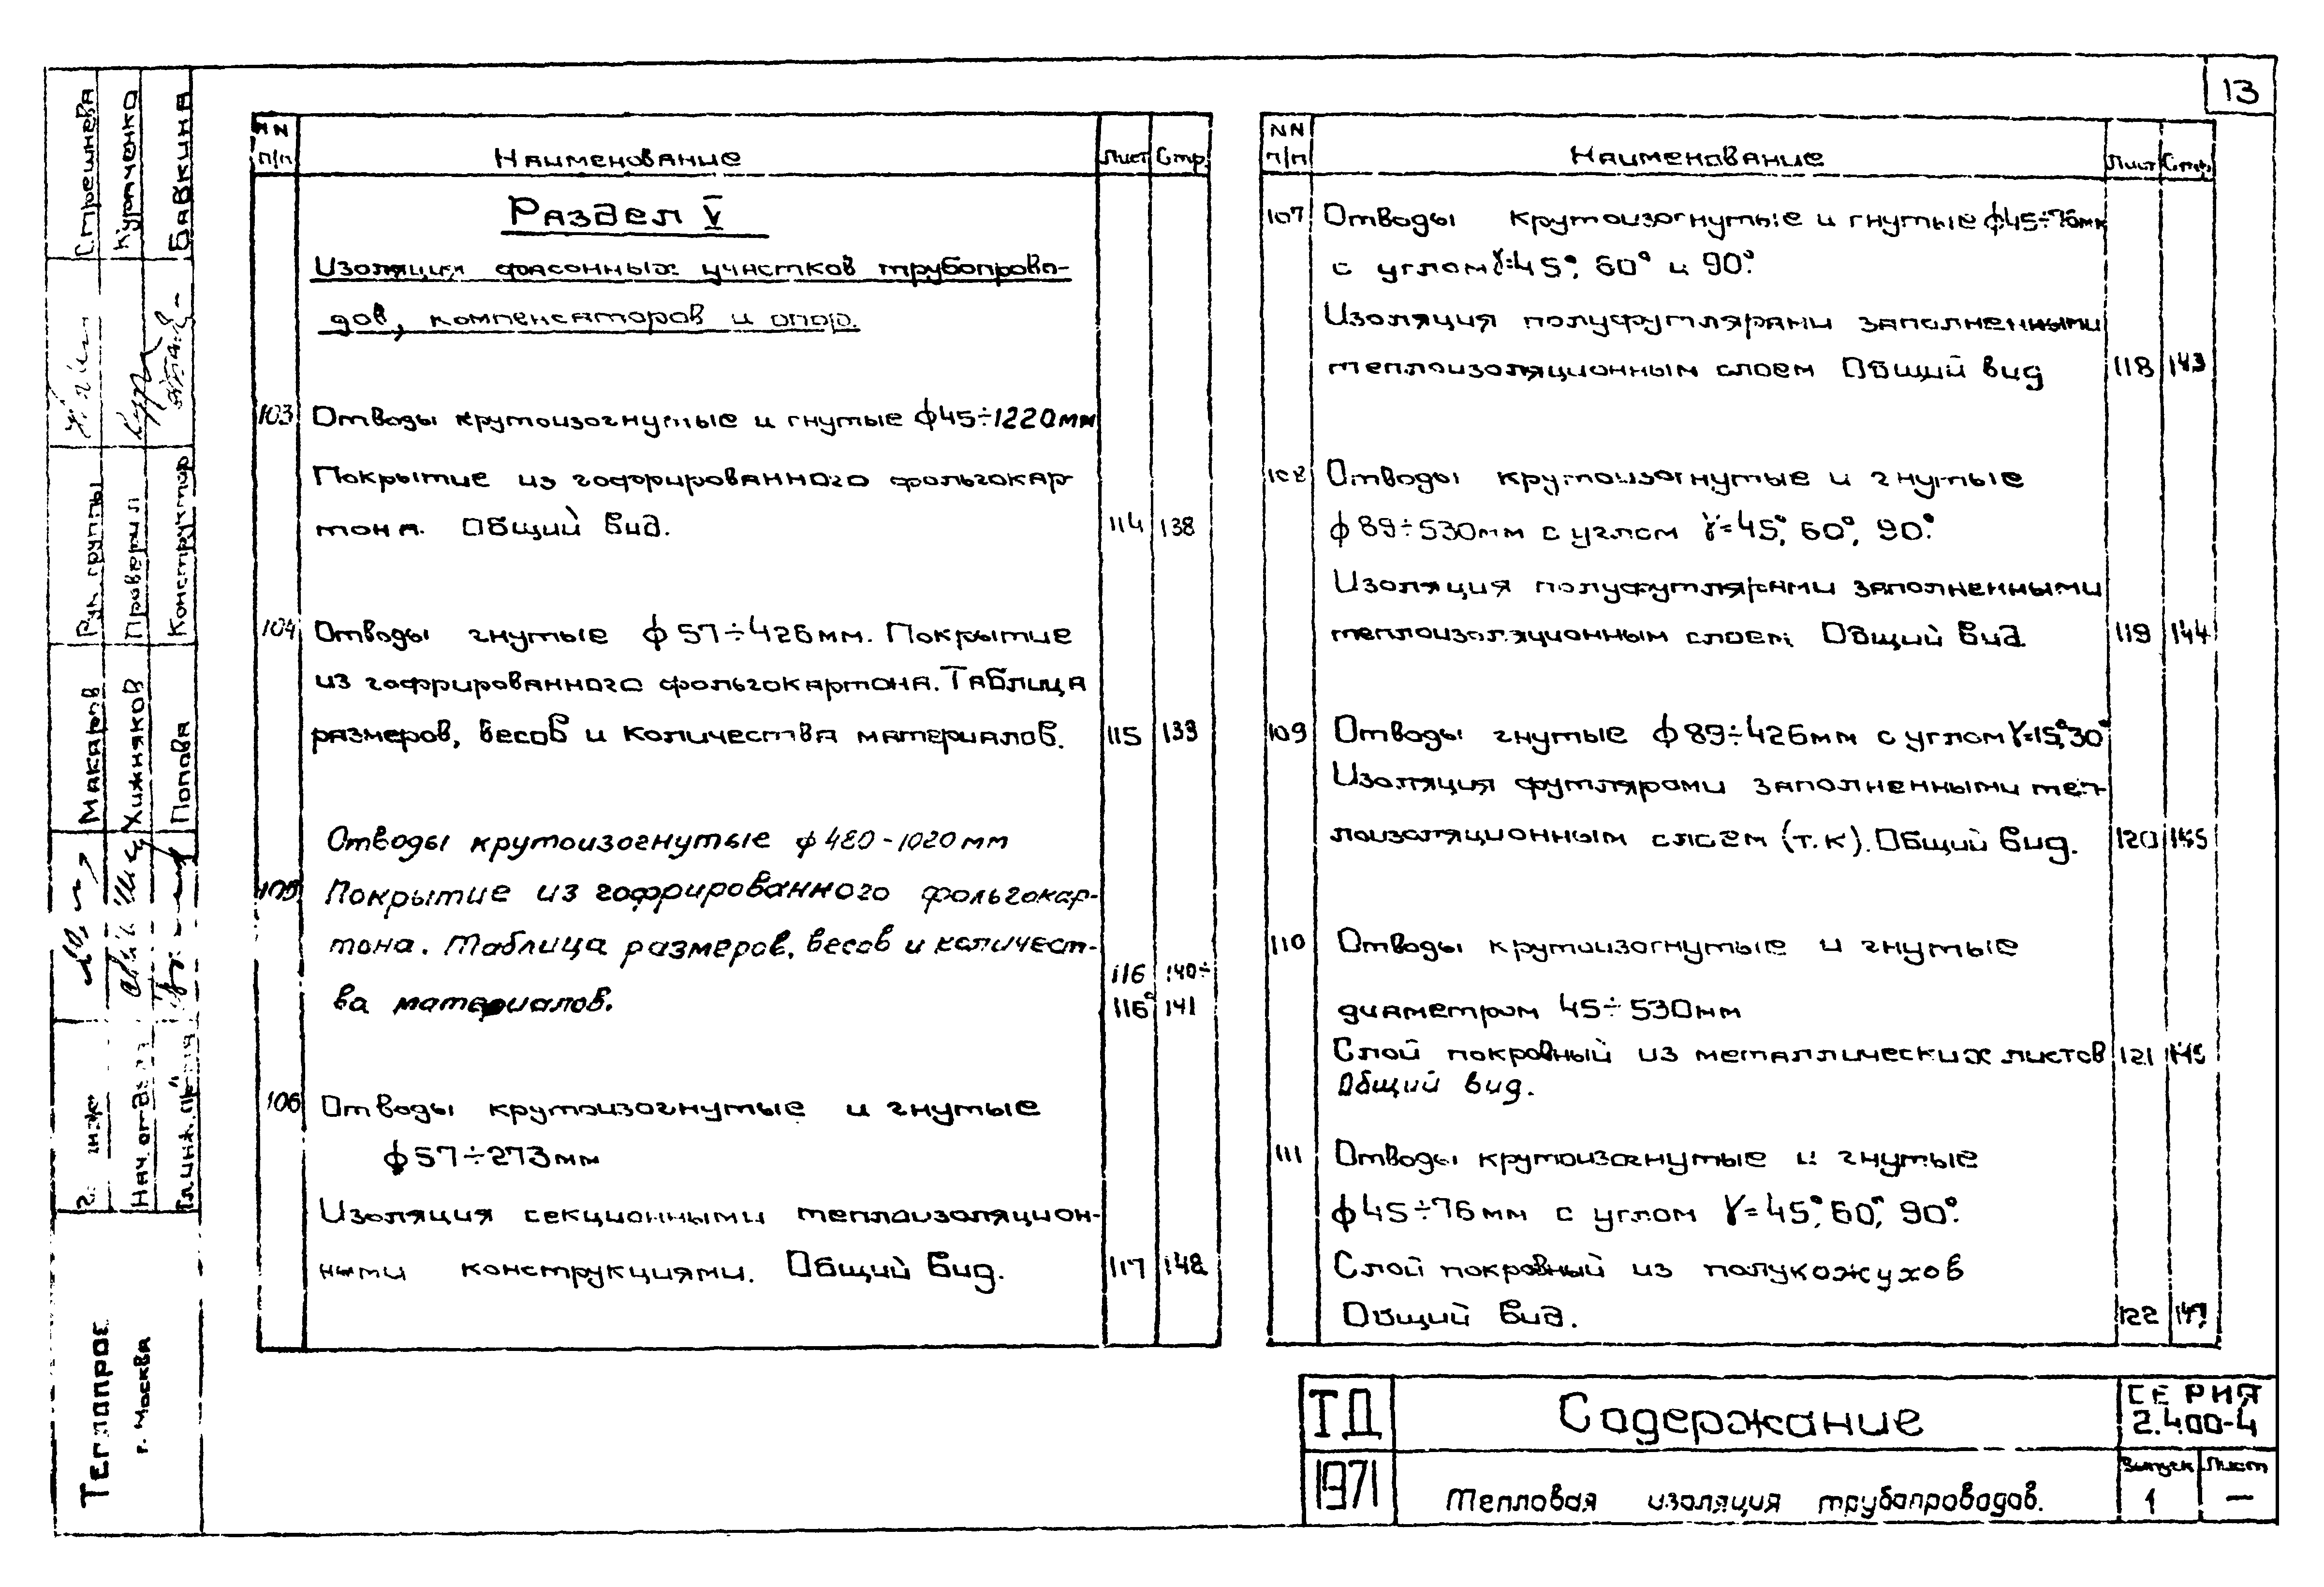 13
NN п/п Наименование Лист Стр.
Раздел V
Изоляция фасонных участков трубопрово-
дов, компенсаторов и опор.
103 Отводы крутоизогнутые и гнутые ф45÷1220мм
Покрытие из гофрированного фольгокар
тона. Общий вид. 114 138
104 Отводы гнутые ф57÷426мм. Покрытие
из гофрированного фольгокартона. Таблица
размеров, весов и количества материалов. 115 139
Отводы крутоизогнутые ф480-1020мм
105 Покрытие из гофрированного фольгокар-
тона. Таблица размеров, весов и количест-
ва материалов. 116 140÷
116а 141
106 Отводы крутоизогнутые и гнутые
ф57÷273мм
Изоляция секционными теплоизоляцион-
ными конструкциями. Общий вид. 117 142
NN п/п Наименование Лист Стр.
107 Отводы крутоизогнутые и гнутые ф45÷76мм
с углом γ=45°, 60° и 90°.
Изоляция полуфутлярами заполненными
теплоизоляционным слоем Общий вид 118 143
108 Отводы крутоизогнутые и гнутые
ф89÷530мм с углом γ=45°, 60°, 90°.
Изоляция полуфутлярами заполненными
теплоизоляционным слоем. Общий вид. 119 144
109 Отводы гнутые ф89÷426мм с углом γ=15°,30°
Изоляция футлярами заполненными теп-
лоизоляционным слоем (т.к). Общий вид. 120
110 Отводы крутоизогнутые и гнутые
диаметром 45÷530мм
Слой покровный из металлических листов 121
Общий вид.
111 Отводы крутоизогнутые и гнутые
ф45÷76мм с углом γ=45°, 60°, 90°.
Слой покровный из полукожухов
Общий вид. 122 147
ТД Содержание СЕРИЯ
2.400-4
1971 Тепловая изоляция трубопроводов. Выпуск Лист
1 —
Стрешнева
Курпченко
Бавкина
Рук. группы
Проверил
Конструктор
Макаров
Хижняков
Попова
инж
Нач. отдела
Гл.инж.пр
Теплопрое
г. Москва